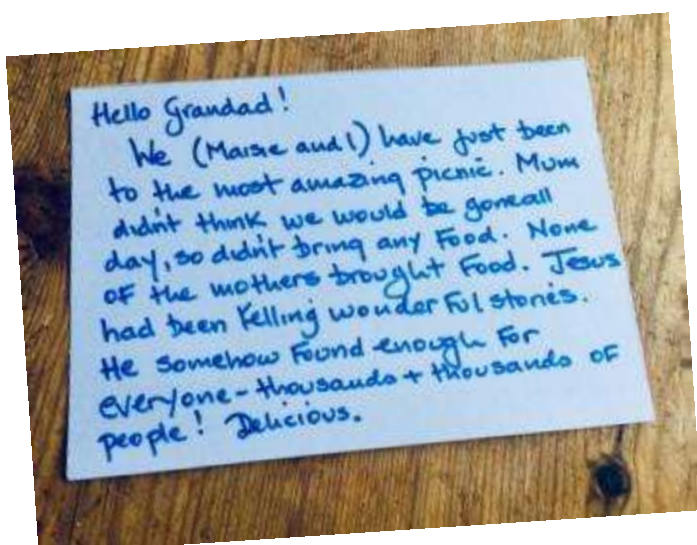 Hello Grandad!
We (Maisie and I) have just been
to the most amazing picnic. Mum
didn't think we would be gone all
day, so didn't bring any Food. None
of the mothers brought Food. Jesus
had been telling wonderful stories.
He somehow found enough for
everyone - thousands + thousands of
people! Delicious.